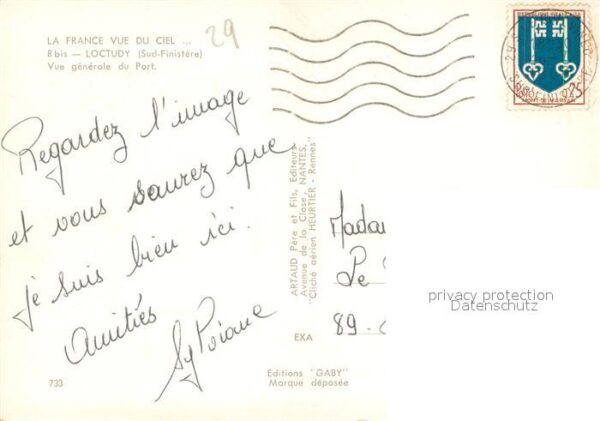 LA FRANCE VUE DU CIEL ...
8 bis — LOCTUDY (Sud-Finistère)
Vue générale du Port.
29
REPUBLIQUE FRANÇAISE
0,25
MONT-DE-MARSAN
Regardez l'image
et vous saurez que
je suis bien ici.
Amitiés
ARTAUD Père et Fils, Editeurs
Avenue de la Close, NANTES
"Cliché aérien HEURTIER - Rennes"
Madam
Le
89 -
privacy protection
Datenschutz
EXA
733
Editions "GABY"
Marque déposée